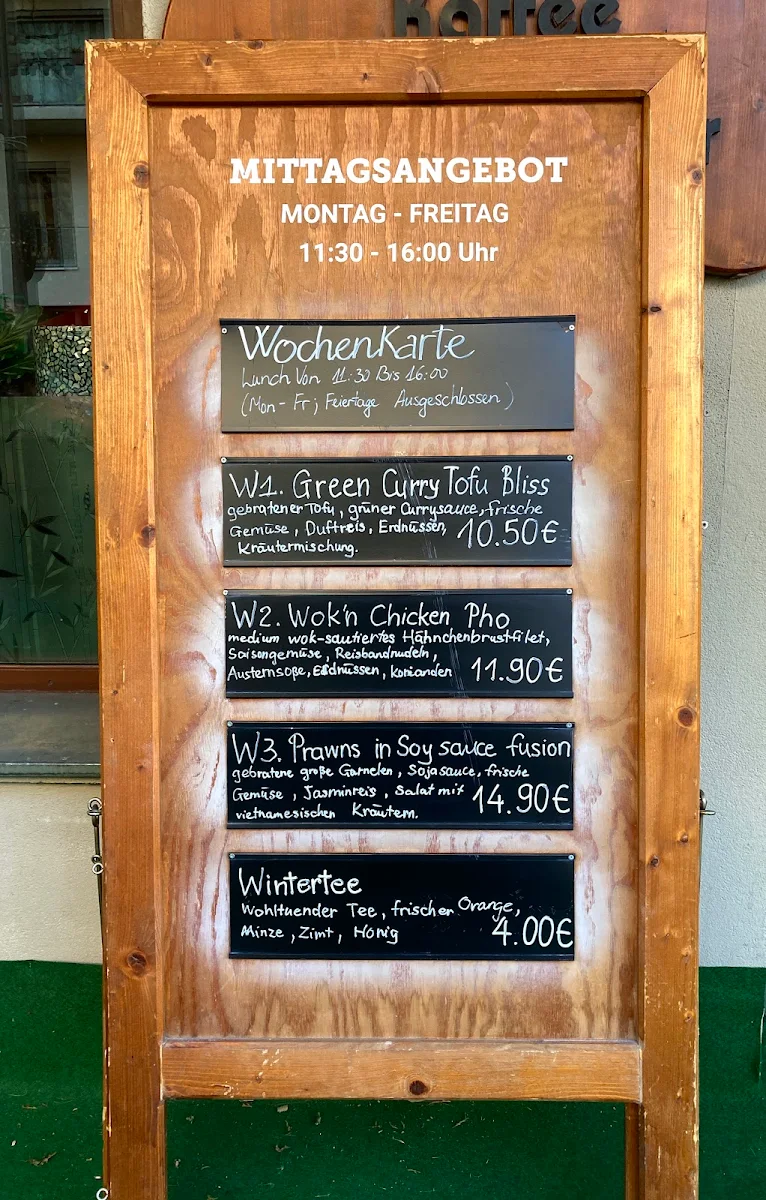 Kaffee
MITTAGSANGEBOT
MONTAG - FREITAG
11:30 - 16:00 Uhr
WochenKarte
Lunch Von 11:30 Bis 16:00
(Mon - Fr ; Feiertage Ausgeschlossen )
W1. Green Curry Tofu Bliss
gebratener Tofu, grüner Currysauce, frische
Gemüse, Duftreis, Erdnüssen,
Kräutermischung.
10.50€
W2. Wok'n Chicken Pho
medium wok-sautiertes Hähnchenbrustfilet,
Saisongemüse, Reisbandnudeln,
Austernsoße, Erdnüssen, Koriander
11.90€
W3. Prawns in Soy sauce fusion
gebratene große Garnelen, Sojasauce, frische
Gemüse, Jasminreis, Salat mit
vietnamesischen Kräutern.
14.90€
Wintertee
Wohltuender Tee, frischer Orange,
Minze, Zimt, Honig
4.00€